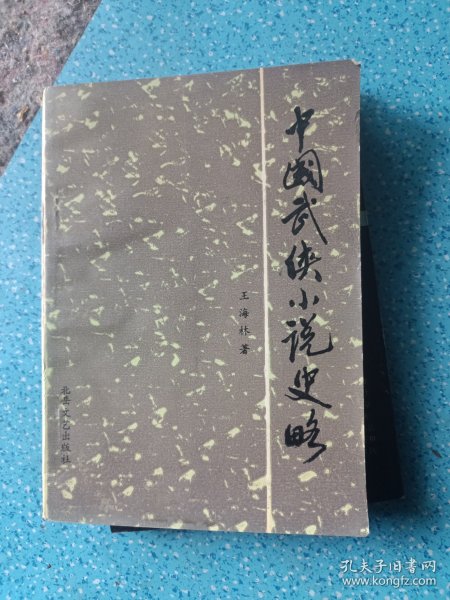 中國武俠小说史略
王海林著
北岳文艺出版社
孔夫子旧书网
www.kongfz.com